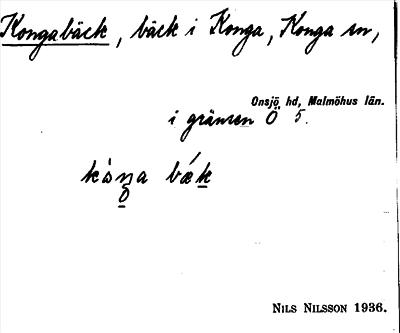 Kongabäck, bäck i Konga, Konga sn,
Onsjö hd, Malmöhus län.
i gränsen Ö 5.
kåŋa bǽk
NILS NILSSON 1936.